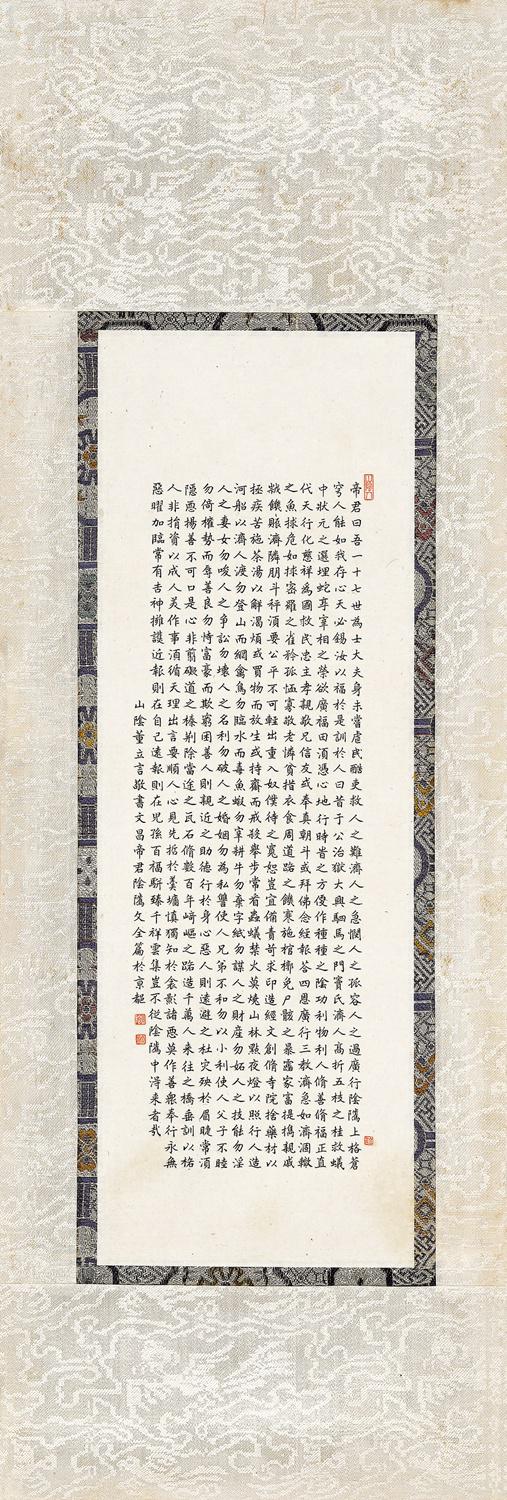 帝君曰吾一十七世為士大夫身未嘗虐民酷吏救人之難濟人之急憫人之孤容人之過廣行陰隲上格蒼
穹人能如我存心天必錫汝以福於是訓於人曰昔于公治獄大興駟馬之門竇氏濟人高折五枝之桂救蟻
中狀元之選埋蛇享宰相之榮欲廣福田須憑心地行時時之方便作種種之陰功利物利人脩善脩福正直
代天行化慈祥為國救民忠主孝親敬兄信友或奉真朝斗或拜佛念經報答四恩廣行三教濟急如濟涸轍
之魚捄危如捄密羅之雀矜孤恤寡敬老憐貧措衣食周道路之饑寒施棺槨免尸骸之暴露家富提攜親戚
歲饑賑濟隣朋斗秤須要公平不可輕出重入奴僕待之寬恕豈宜備責苛求印造經文創脩寺院捨藥材以
拯疾苦施茶湯以解渴煩或買物而放生或持齋而戒殺舉步常看蟲蟻禁火莫燒山林點夜燈以照行人造
河船以濟人渡勿登山而網禽鳥勿臨水而毒魚蝦勿宰耕牛勿棄字紙勿謀人之財產勿妬人之技能勿淫
人之妻女勿唆人之爭訟勿壞人之名利勿破人之婚姻勿為私讐使人兄弟不和勿以小利使人父子不睦
勿倚權勢而辱善良勿恃富豪而欺窮困善人則親近之助德行於身心惡人則遠避之杜災殃於眉睫常須
隱惡揚善不可口是心非翦礙道之榛荆除當途之瓦石脩數百年崎嶇之路造千萬人來往之橋垂訓以格
人非捐資以成人美作事須循天理出言要順人心見先哲於羹墻慎獨知於衾影諸惡莫作善衆奉行永無
惡曜加臨常有吉神擁護近報則在自己遠報則在兒孫百福駢臻千祥雲集豈不從陰隲中得來者哉
山陰董立言敬書文昌帝君陰隲文全篇於京邸